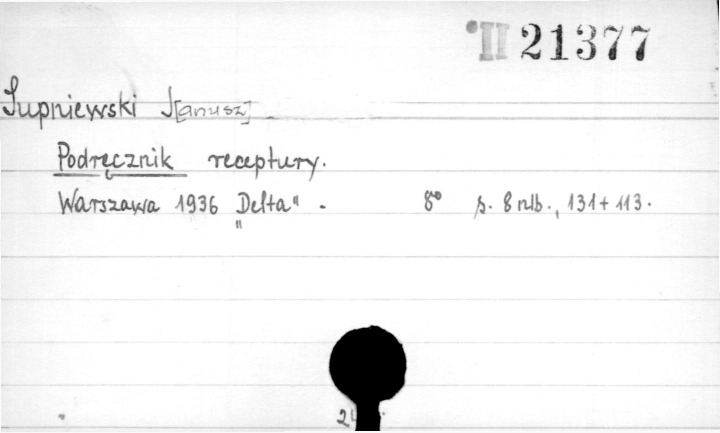 II 21377
Supniewski J[anusz]
Podręcznik receptury.
Warszawa 1936 „Delta“. 8° s. 8 nlb., 131 + 113.